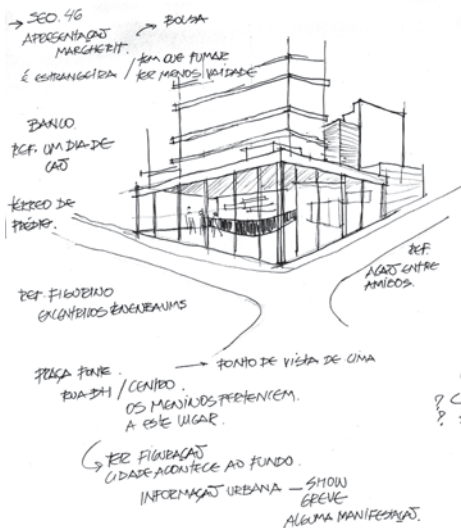 → SEQ. 46
APRESENTAÇAÕ
MARGHERIT.
→ BOLSA
É ESTRANGEIRA / TEM QUE FUMAR
TER MENOS VAIDADE
BANCO
REF. UM DIA DE
CAÕ
TÉRREO DE
PRÉDIO.
REF.
AÇAÕ ENTRE
AMIGOS.
REF. FIGURINO
EXCÊNTRICOS TENENBAUMS
PRAÇA FONTE
RUA BH / CENTRO.
→ PONTO DE VISTA DE CIMA
OS MENINOS PERTENCEM.
A ESTE LUGAR.
? 
?
TER FIGURAÇAÕ
CIDADE ACONTECE AO FUNDO.
INFORMAÇAÕ URBANA — SHOW
GREVE
ALGUMA MANIFESTAÇAÕ.